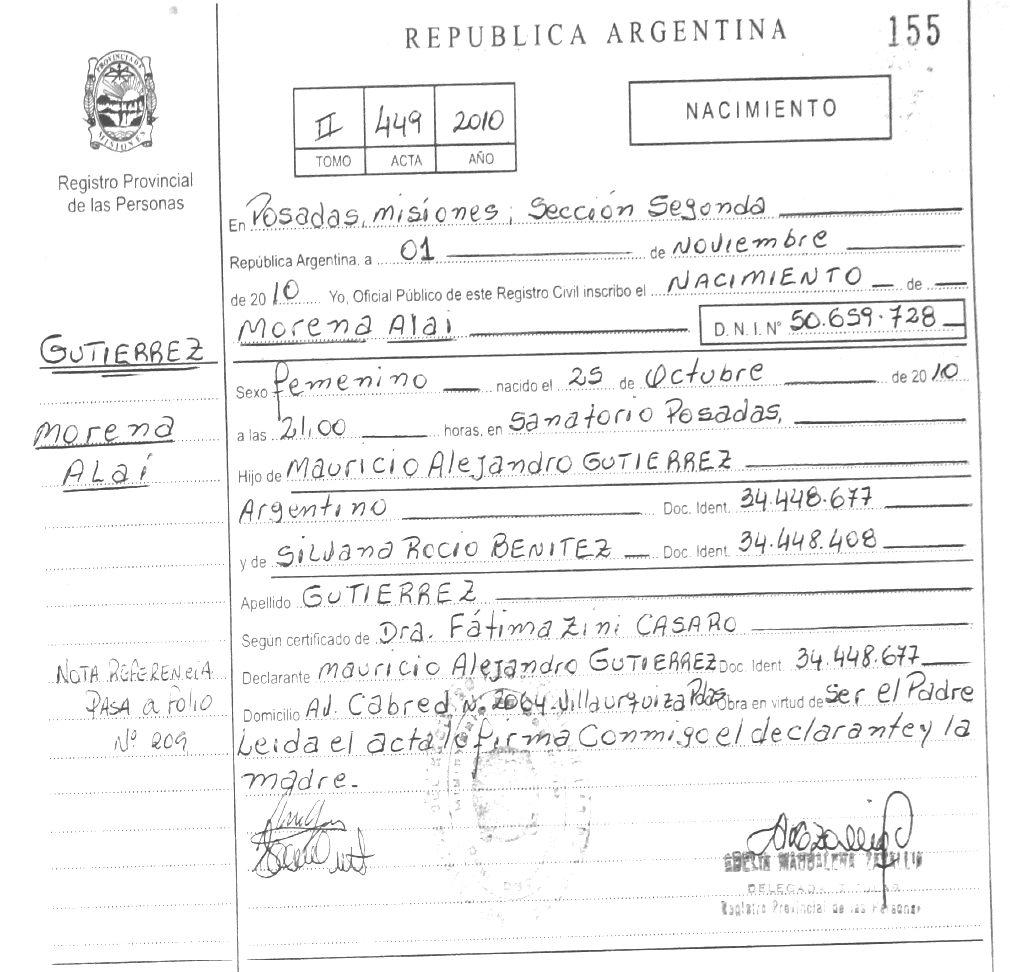 REPUBLICA ARGENTINA
155
PROVINCIA DE MISIONES
Registro Provincial
de las Personas
II 449 2010
TOMO ACTA AÑO
NACIMIENTO
En Posadas, misiones, Sección Segonda
República Argentina, a 01 de Noviembre
de 2010 Yo, Oficial Público de este Registro Civil inscribo el NACIMIENTO de
Morena Alai D. N. I. Nº 50.659.728
GUTIERREZ
Morena
ALAí
Sexo femenino nacido el 25 de Octubre de 2010
a las 21,00 horas, en Sanatorio Posadas,
Hijo de Mauricio Alejandro GUTIERREZ
Argentino Doc. Ident. 34.448.677
y de Silvana Rocio BENITEZ Doc. Ident. 34.448.408
Apellido GUTIERREZ
Según certificado de Dra. Fátima Zini CASARO
Declarante mauricio Alejandro GUTIERREZ Doc. Ident. 34.448.677
Domicilio Av. Cabred Nº 2064 Villa urquiza Pdas Obra en virtud de Ser el Padre
Leida el acta lo firma Conmigo el declarante y la
madre.
NOTA REFERENCIA
PASA a Folio
Nº 209
DELEGADA
Registro Provincial de las Personas